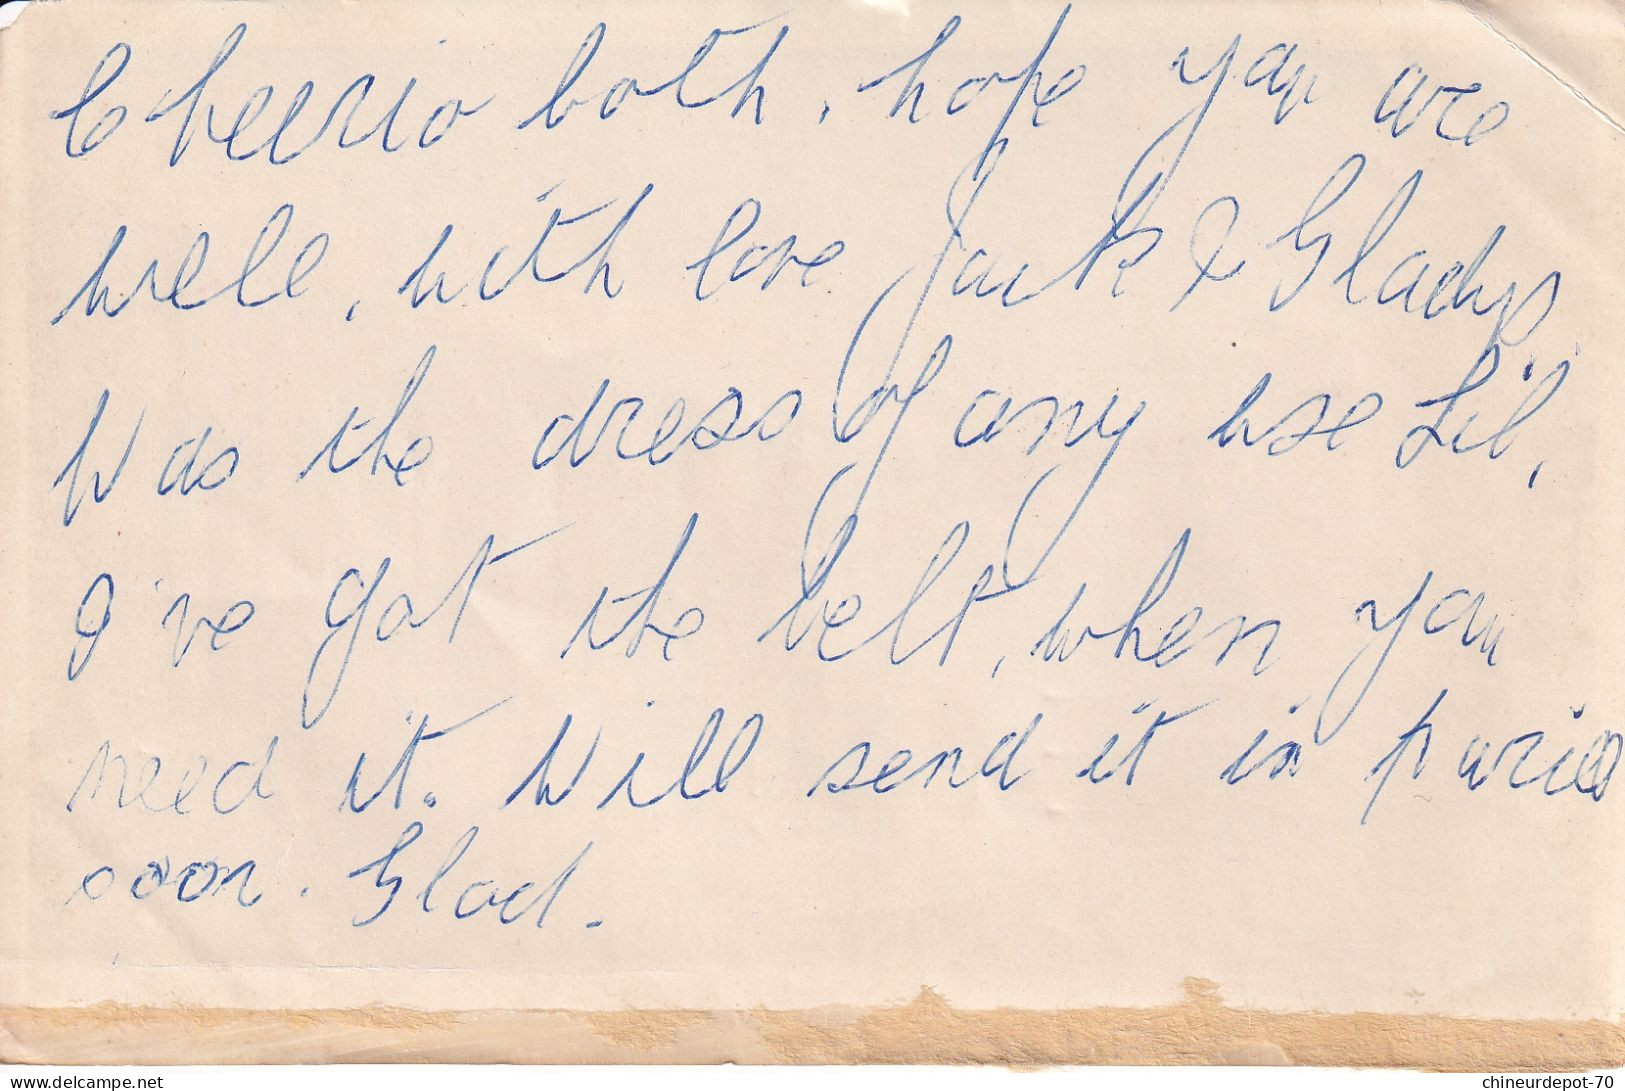 Cheerio both, hope you are
well, with love Jack & Gladys
Was the dress of any use Lil,
I've got the belt, when you
need it. Will send it in
soon. Glad.
delcampe.net
chineurdepot-70